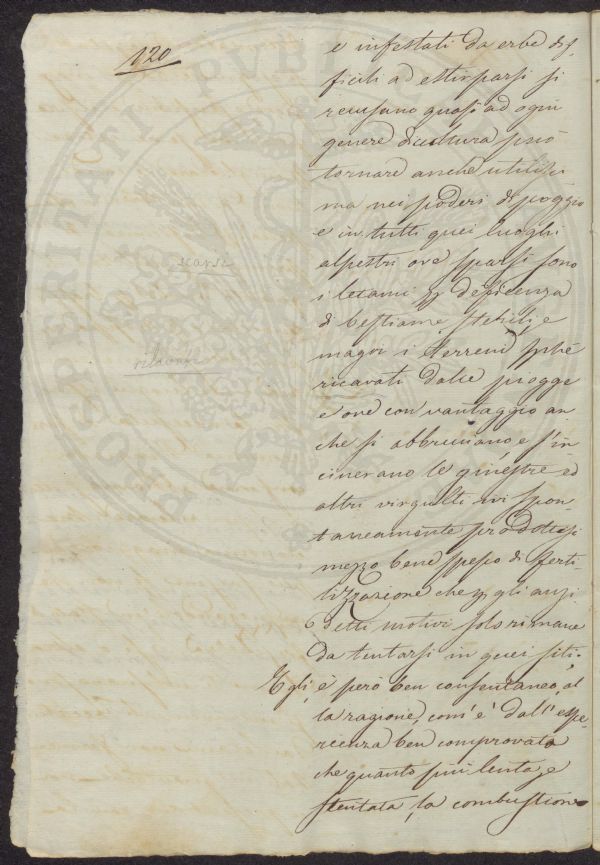 120
e infestati da erbe dif
ficili ad estirparsi si
recusano quasi ad ogni
genere di cultura può
tornare anche utilissi
ma nei poderi di poggio
e in tutti quei luoghi
alpestri ove sparsi sono
scarsi
i letami p deficenza
di bestiame, sterili, e
magri i terreni
ricavati dalle piogge
e ove con vantaggio an
che si abbruciano, e s'in
cinerano le ginestre ed
altri virgulti ivi spon
taneamente prodottisi
mezzo bene spesso di ferti-
lizzazione che p gli anzi
detti motivi solo rimane
da tentarsi in quei siti.
Egli è però ben consentaneo al
la ragione, com'è dall'espe
rienza ben comprovato
che quanto più lenta, e
stentata, la combustione
PROSPERITATI PUBLICAE